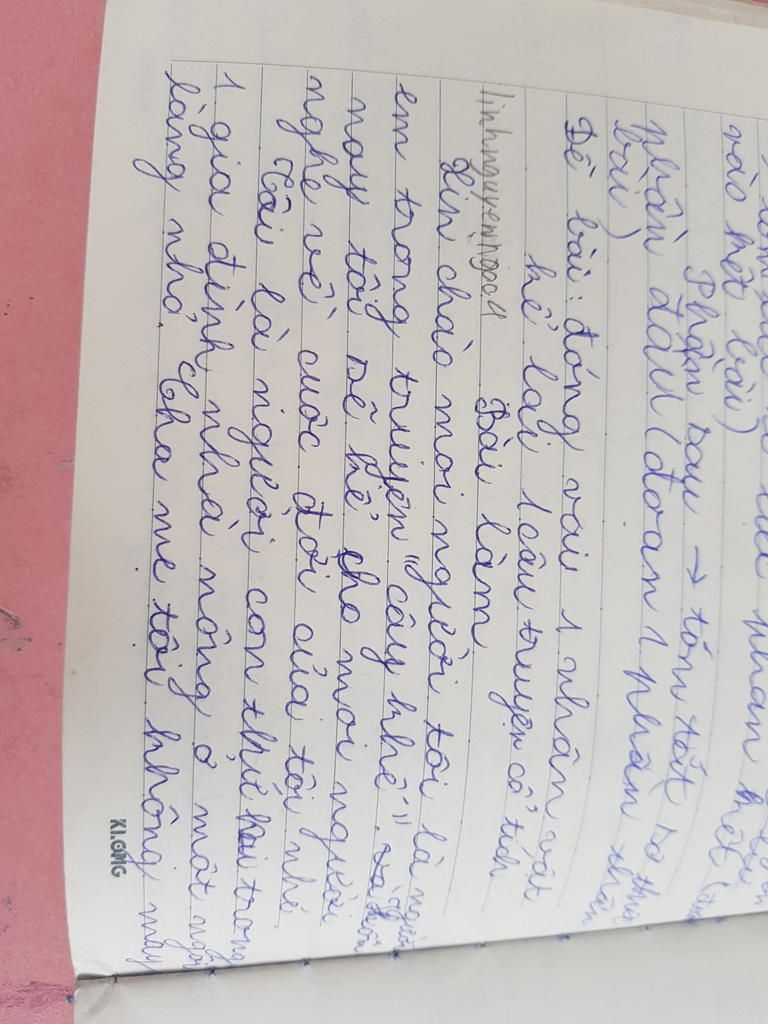 vào hết bài)
Phần sau → tóm tắt
phần đầu (đoạn 1 phần thân
bài)
Đề bài: đóng vai 1 nhân vật
kể lại 1 câu truyện cổ tích
linhnguyenngoc4
Bài làm
Xin chào mọi người tôi là người
em trong truyện "cây khế". và hôm
nay tôi sẽ kể cho mọi người
nghe về cuộc đời của tôi nhé.
Tôi là người con thứ hai trong
1 gia đình nhà nông ở một ngôi
làng nhỏ. Cha mẹ tôi không may
KLONG